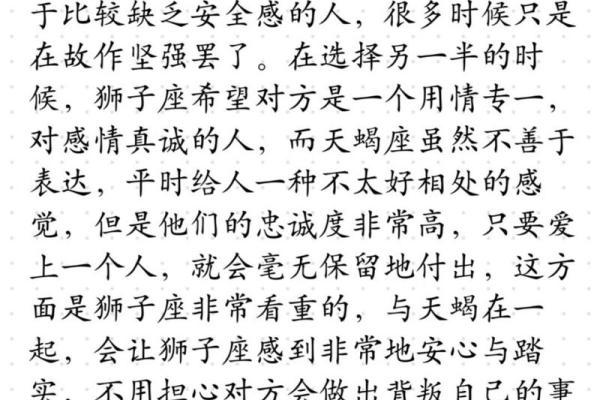 于比较缺乏安全感的人，很多时候只是
在故作坚强罢了。在选择另一半的时
候，狮子座希望对方是一个用情专一，
对感情真诚的人，而天蝎座虽然不善于
表达，平时给人一种不太好相处的感
觉，但是他们的忠诚度非常高，只要爱
上一个人，就会毫无保留地付出，这方
面是狮子座非常看重的，与天蝎在一
起，会让狮子座感到非常地安心与踏
实，不用担心对方会做出背叛自己的事